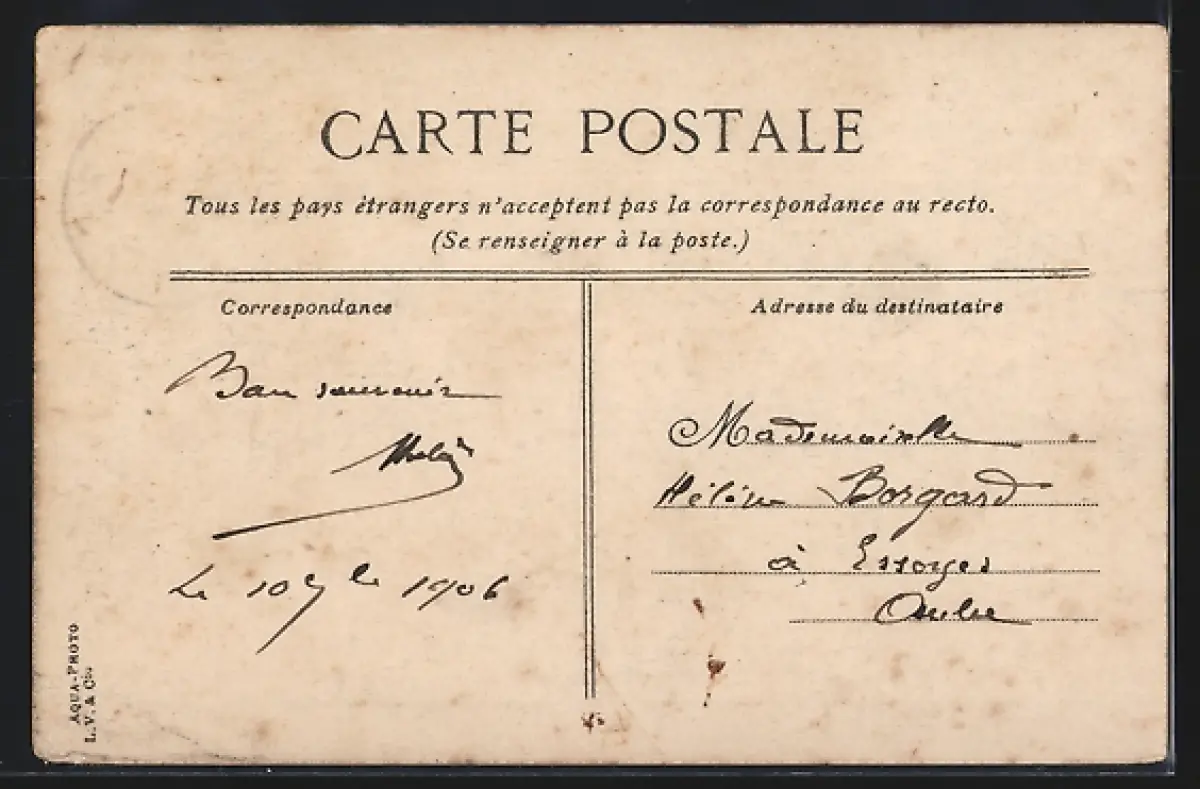 CARTE POSTALE
Tous les pays étrangers n'acceptent pas la correspondance au recto.
(Se renseigner à la poste.)
Correspondance
Bon souvenir
Le 10 7bre 1906
Adresse du destinataire
Mademoiselle
Hélène Borgard
à Essoyes
Aube
AQUA-PHOTO
L. V. & Cie